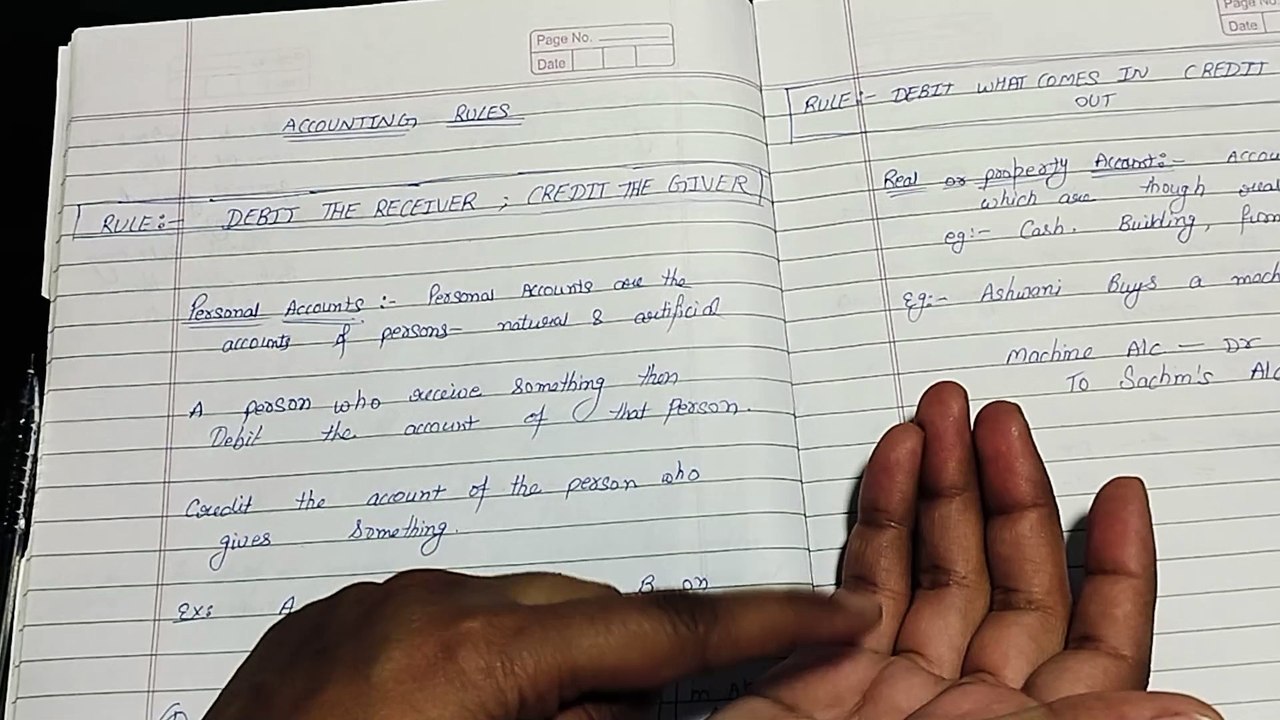 Page No.
Date
ACCOUNTING RULES
RULE:- DEBIT THE RECEIVER ; CREDIT THE GIVER
Personal Accounts :- Personal Accounts are the
accounts of persons- natural & artificial
A person who receive something then
Debit the account of that Person.
Credit the account of the person who
gives something.
Ex: A B on
Page No.
Date
RULE:- DEBIT WHAT COMES IN CREDIT
OUT
Real or property Account:-
which are though real
eg:- Cash. Building,
Eg:- Ashwani Buys a
Machine A/c - Dr
To Sachin's A/c